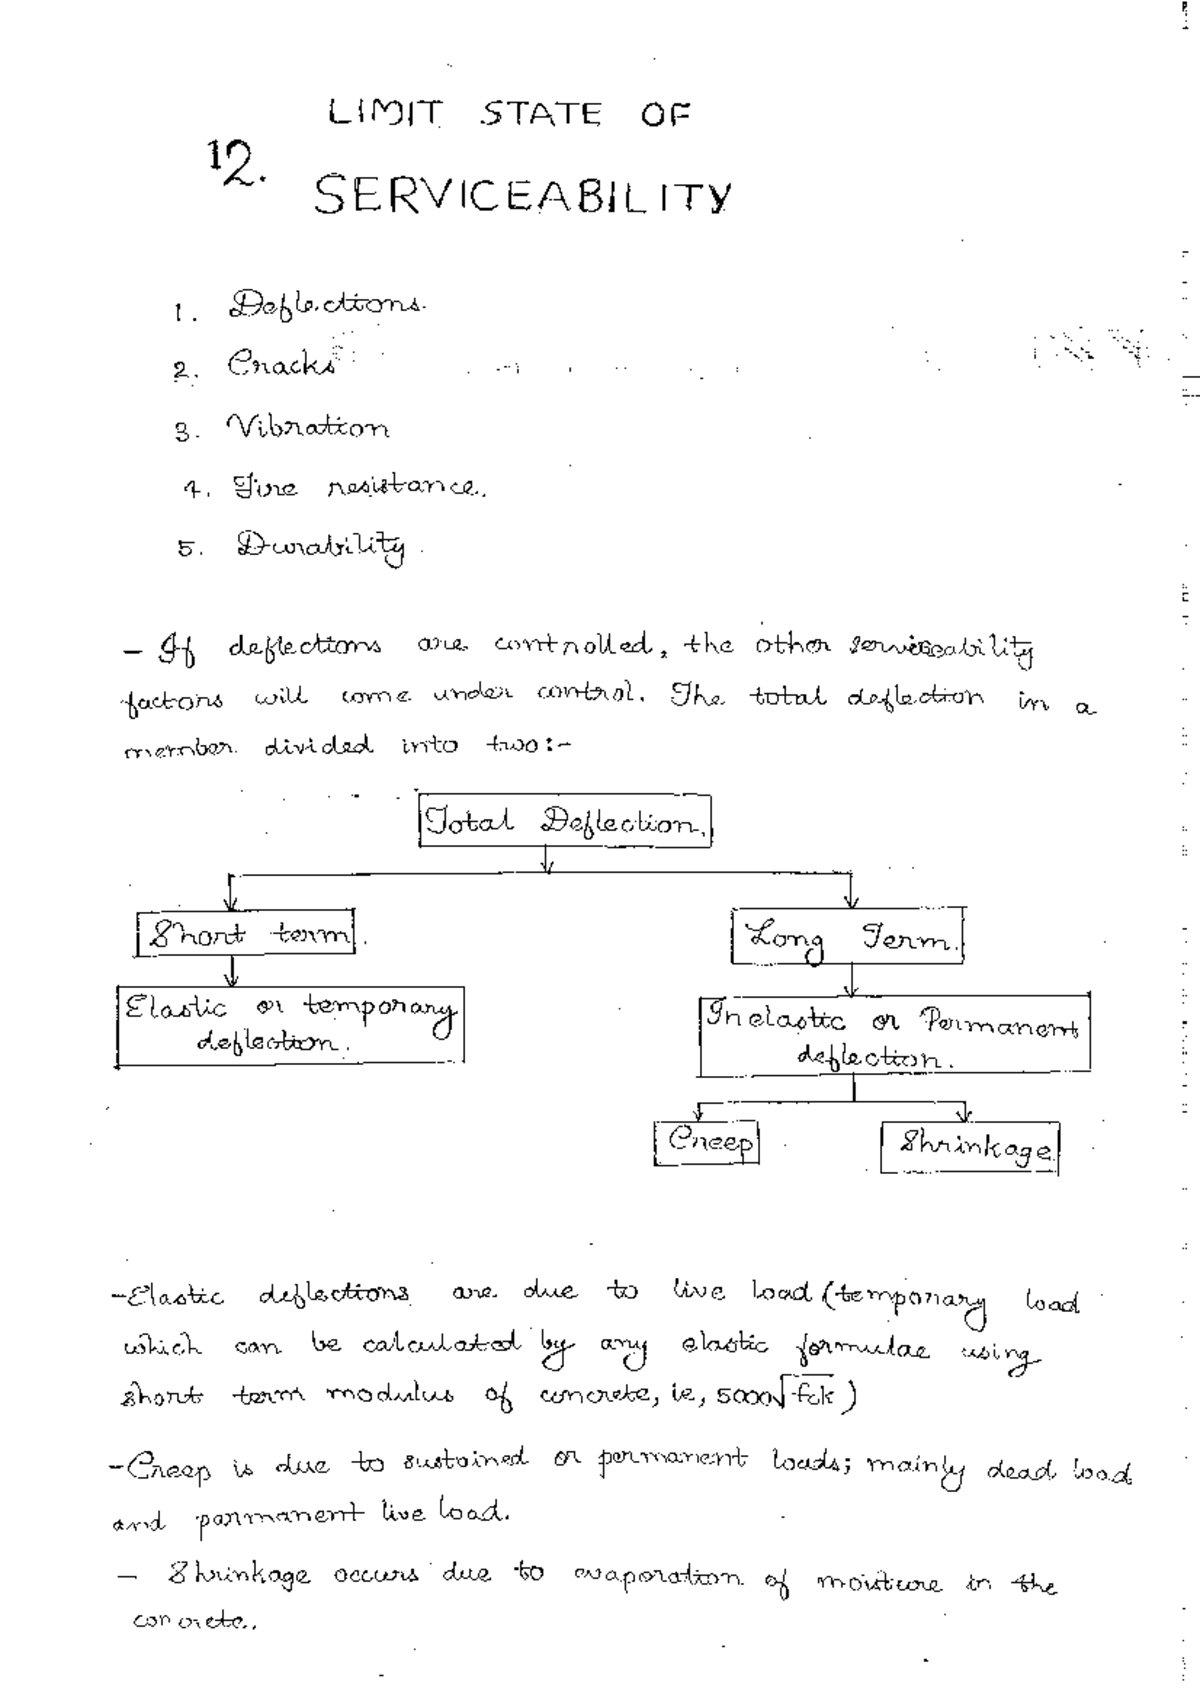 LIMIT STATE OF
12.
SERVICEABILITY
1. Deflections.
2. Cracks
3. Vibration
4. Fire resistance.
5. Durability.
- If deflections are controlled, the other serviceability
factors will come under control. The total deflection in a
member divided into two:-
Total Deflection.
Short term.
Long Term.
Elastic or temporary
deflection.
Inelastic or Permanent
deflection.
Creep
Shrinkage
-Elastic deflections are due to live load (temporary load
which can be calculated by any elastic formulae using
short term modulus of concrete, ie, 5000√fck)
-Creep is due to sustained or permanent loads; mainly dead load
and permanent live load.
- Shrinkage occurs due to evaporation of moisture in the
concrete.